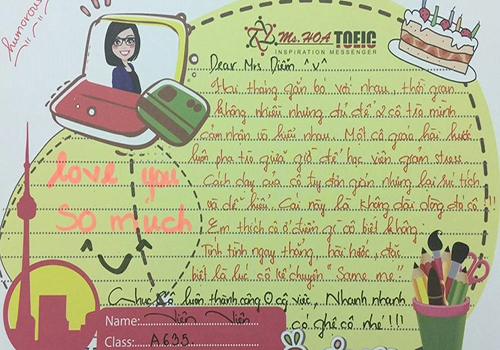 humorous
Ms. HOA TOEIC
INSPIRATION MESSENGER
Dear Mrs Diễm ^v^
Hai tháng gắn bó với nhau, thời gian
không nhiều nhưng đủ để 2 cô trò mình
cảm nhận và hiểu nhau. Một cô giáo hài hước
luôn pha trò giữa giờ để học viên giảm stress.
Cách dạy của cô tuy đơn giản nhưng lại súc tích
và dễ hiểu. Cái này là không đãi đằng đó cô !!!
Em thích cô ở điểm gì cô biết không
Tính tình ngay thẳng, hài hước, đặc
biệt là lúc cô kể chuyện "Same me."
love you
so much
Chúc cô luôn thành công và việc, Nhanh nhanh
có ghệ cô nhé !!!
Name: Viên Viên
Class: A635